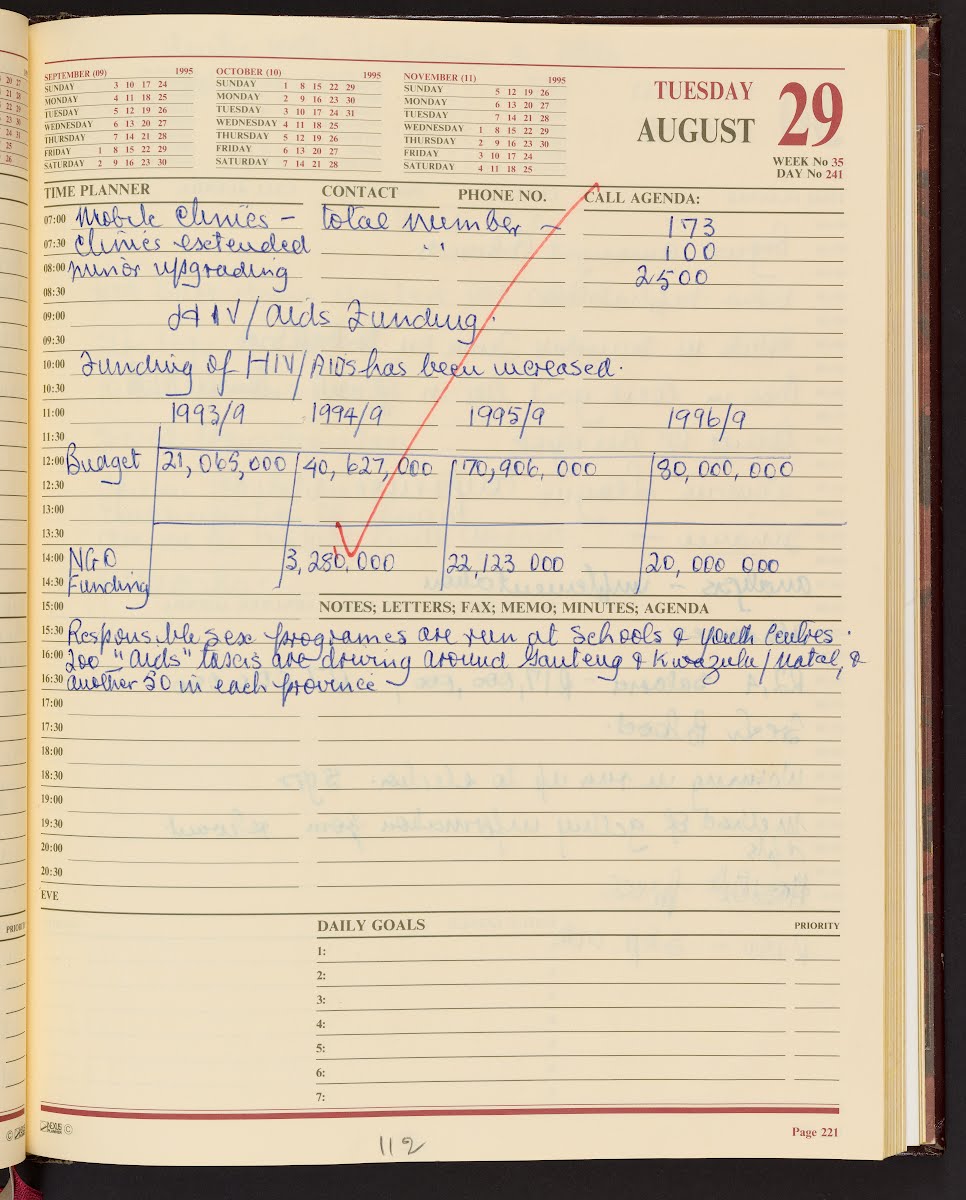 SEPTEMBER (09) 1995
SUNDAY 3 10 17 24
MONDAY 4 11 18 25
TUESDAY 5 12 19 26
WEDNESDAY 6 13 20 27
THURSDAY 7 14 21 28
FRIDAY 1 8 15 22 29
SATURDAY 2 9 16 23 30
OCTOBER (10) 1995
SUNDAY 1 8 15 22 29
MONDAY 2 9 16 23 30
TUESDAY 3 10 17 24 31
WEDNESDAY 4 11 18 25
THURSDAY 5 12 19 26
FRIDAY 6 13 20 27
SATURDAY 7 14 21 28
NOVEMBER (11) 1995
SUNDAY 5 12 19 26
MONDAY 6 13 20 27
TUESDAY 7 14 21 28
WEDNESDAY 1 8 15 22 29
THURSDAY 2 9 16 23 30
FRIDAY 3 10 17 24
SATURDAY 4 11 18 25
TUESDAY 29
AUGUST
WEEK No 35
DAY No 241
TIME PLANNER CONTACT PHONE NO. CALL AGENDA:
07:00 Mobile Clinics - total number - 173
07:30 Clinics extended " 100
08:00 Minor upgrading 2500
08:30
09:00 HIV/Aids Funding.
09:30
10:00 Funding of HIV/AIDs has been increased.
10:30
11:00 1993/9 1994/9 1995/9 1996/9
11:30
12:00 Budget 21,065,000 40,627,000 70,906,000 80,000,000
12:30
13:00
13:30
14:00 NGO 3,280,000 22,123 000 20,000 000
14:30 Funding
15:00 NOTES; LETTERS; FAX; MEMO; MINUTES; AGENDA
15:30 Responsible sex programes are run at Schools & youth Centres.
16:00 200 "Aids" taxis are driving around Gauteng & Kwazulu/Natal, &
16:30 another 50 in each province
17:00
17:30
18:00
18:30
19:00
19:30
20:00
20:30
EVE
DAILY GOALS PRIORITY
1:
2:
3:
4:
5:
6:
7:
©
Page 221
112